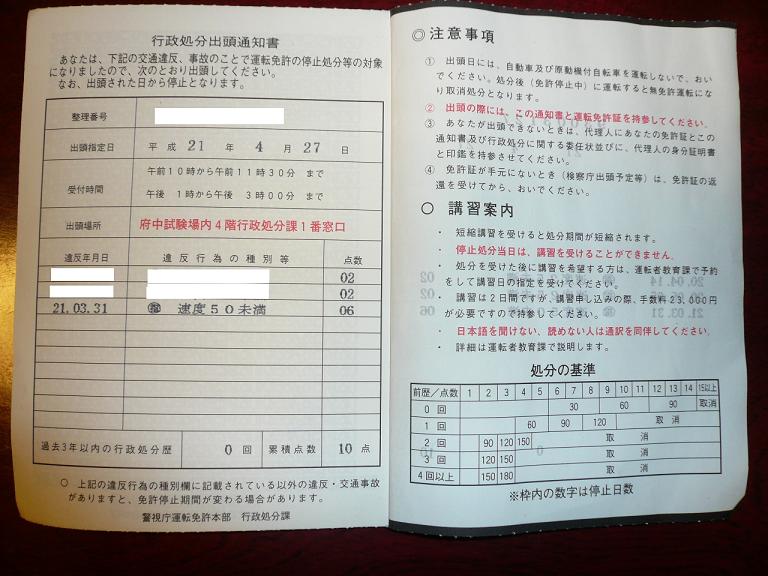 行政処分出頭通知書
あなたは、下記の交通違反、事故のことで運転免許の停止処分等の対象
になりましたので、次のとおり出頭してください。
なお、出頭された日から停止となります。
整理番号
出頭指定日 平成 21 年 4 月 27 日
受付時間 午前10時から午前11時30分 まで
午後 1時から午後 3時00分 まで
出頭場所 府中試験場内4階行政処分課1番窓口
違反年月日 違反行為の種別等 点数
02
02
21.03.31 速度50未満 06
過去3年以内の行政処分歴 0 回 累積点数 10 点
○ 上記の違反行為の種別欄に記載されている以外の違反・交通事故
がありますと、免許停止期間が変わる場合があります。
警視庁運転免許本部 行政処分課
◎注意事項
① 出頭日には、自動車及び原動機付自転車を運転しないで、おい
でください。処分後(免許停止中)に運転すると無免許運転にな
り取消処分となります。
② 出頭の際には、この通知書と運転免許証を持参してください。
③ あなたが出頭できないときは、代理人にあなたの免許証とこの
通知書及び行政処分に関する委任状並びに、代理人の身分証明書
と印鑑を持参させてください。
④ 免許証が手元にないとき(検察庁出頭予定等)は、免許証の返還
を受けてから、おいでください。
○ 講習案内
・ 短縮講習を受けると処分期間が短縮されます。
・ 停止処分当日は、講習を受けることができません。
・ 処分を受けた後に講習を希望する方は、運転者教育課で予約
をして講習日の指定を受けてください。
・ 講習は2日間ですが、講習申し込みの際、手数料23,000円
が必要ですので持参してください。
・ 日本語を聞けない、読めない人は通訳を同伴してください。
・ 詳細は運転者教育課で説明します。
処分の基準
前歴/点数 1 2 3 4 5 6 7 8 9 10 11 12 13 14 15以上
0 回 30 60 90 取消
1 回 60 90 120 取 消
2 回 90 120 150 取 消
3 回 120 150 取 消
4回以上 150 180 取 消
※枠内の数字は停止日数